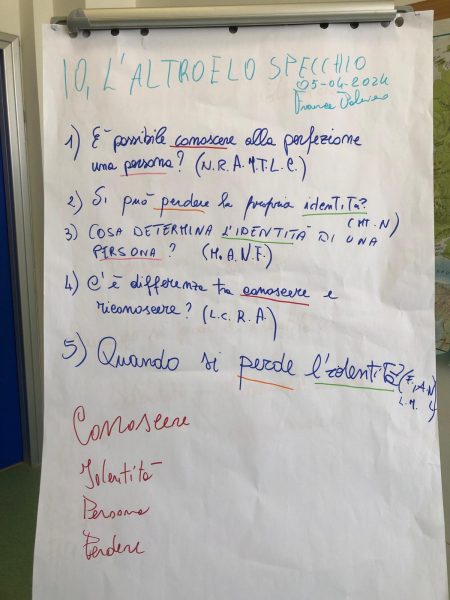 IO, L'ALTRO E LO SPECCHIO
05-04-2024
1) È possibile conoscere alla perfezione
una persona? (N.R.A.M.T.L.C.)
2) Si può perdere la propria identità?
(MT.N)
3) COSA DETERMINA L'IDENTITÀ DI UNA
PERSONA? (M.A.N.F.)
4) C'è differenza tra conoscere e
riconoscere? (L.C.R.A.)
5) Quando si perde l'identità? (F.A.N
L.M.
Conoscere
Identità
Persona
Perdere